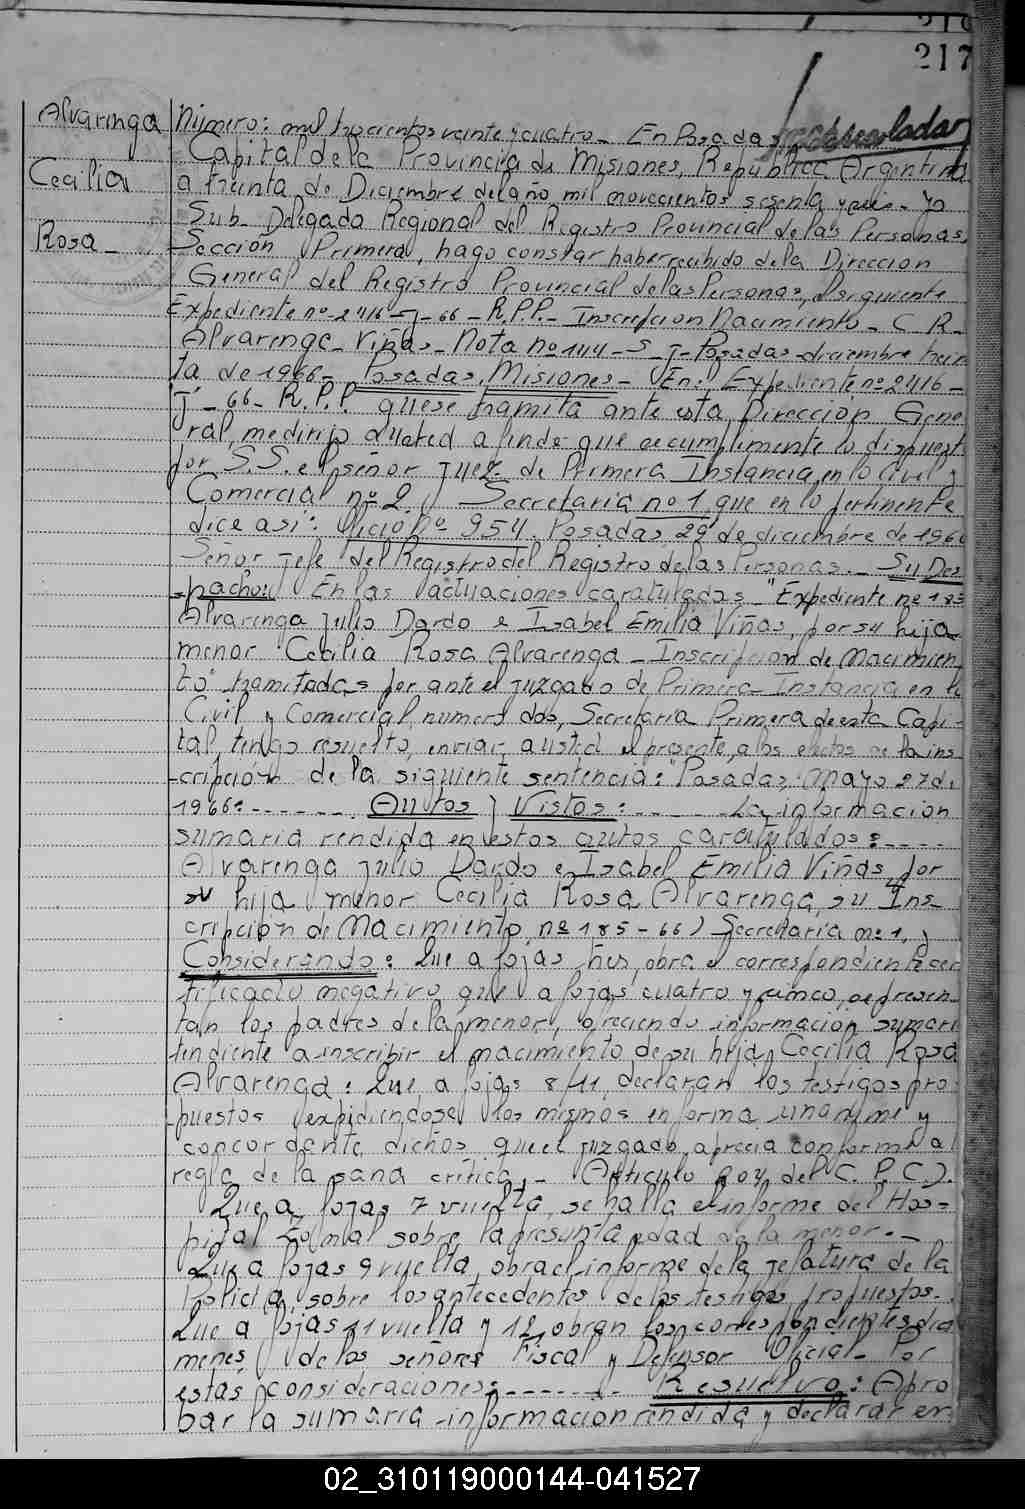 217
Alvaringa
Cecilia
Rosa -
Número: mil trescientos veinte y cuatro - En Posadas
Capital de la Provincia de Misiones, República Argentina
a treinta de Diciembre del año mil novecientos sesenta y seis - Yo
Sub-Delegado Regional del Registro Provincial de las Personas,
Sección Primera, hago constar haber recibido de la Dirección
General del Registro Provincial de las Personas, el siguiente
Expediente nº 2416 - J - 66 - R.P.P. - Inscripcion Nacimiento - C. R.
Alvarenga - Viñas - Nota nº 144 - S - J - Posadas - diciembre trein
ta de 1966 - Posadas, Misiones - En: Expediente nº 2416 -
J - 66 - R.P.P. que se tramita ante esta Dirección Gene
ral, me dirijo a usted a fin de que de cumplimente lo dispuest
por S.S. el señor Juez de Primera Instancia en lo Civil y
Comercial nº 2, Secretaria nº 1 que en lo pertinente
dice así: Oficio nº 954. Posadas, 29 de diciembre de 1966
Señor Jefe del Registro del Registro de las Personas. - Su Des
pacho: En las actuaciones caratuladas "Expediente nº 185
Alvarenga Julio Dardo e Isabel Emilia Viñas, por su hija
menor Cecilia Rosa Alvarenga - Inscripcion de Nacimien
to" tramitadas por ante el Juzgado de Primera Instancia en lo
Civil y Comercial, numero dos, Secretaria Primera de esta Capi-
tal, tengo resuelto, enviar a usted el presente, a los efectos de la ins
cripción de la siguiente sentencia: "Posadas, Mayo 27 de
1966: - - - - - - Autos y Vistos: - - - - - La informacion
sumaria rendida en estos autos caratulados: - - - -
Alvarenga Julio Dardo e Isabel Emilia Viñas, por
su hija menor Cecilia Rosa Alvarenga, su Ins-
cripción de Nacimiento, nº 185 - 66) Secretaria nº 1, y
Considerando: Que a fojas tres, obra el correspondiente cer
tificado negativo que a fojas cuatro y cinco, se presen-
tan los padres de la menor, ofreciendo información sumari
tendiente a inscribir el nacimiento de su hija, Cecilia Rosa
Alvarenga: Que a fojas 8/11, declaran los testigos pro
puestos expidiendose los mismos en forma unanime y
concordante, dichos que el Juzgado aprecia conforme a l
regla de la sana crítica, - (Articulo 204 del C. P. C).
Que a fojas 7 vuelta, se halla el informe del Hos=
pital Zonal sobre la presunta edad de la menor. -
Que a fojas 9 vuelta, obra el informe de la Jefatura de la
Policia, sobre los antecedentes de los testigos propuestos.
Que a fojas 11 vuelta y 12, obran los correspondientes dic
menes, de los señores Fiscal y Defensor Oficial - Por
estas consideraciones: - - - - - - Resuelvo: Apro
bar la sumaria informacion rendida y declarar en
02_310119000144-041527